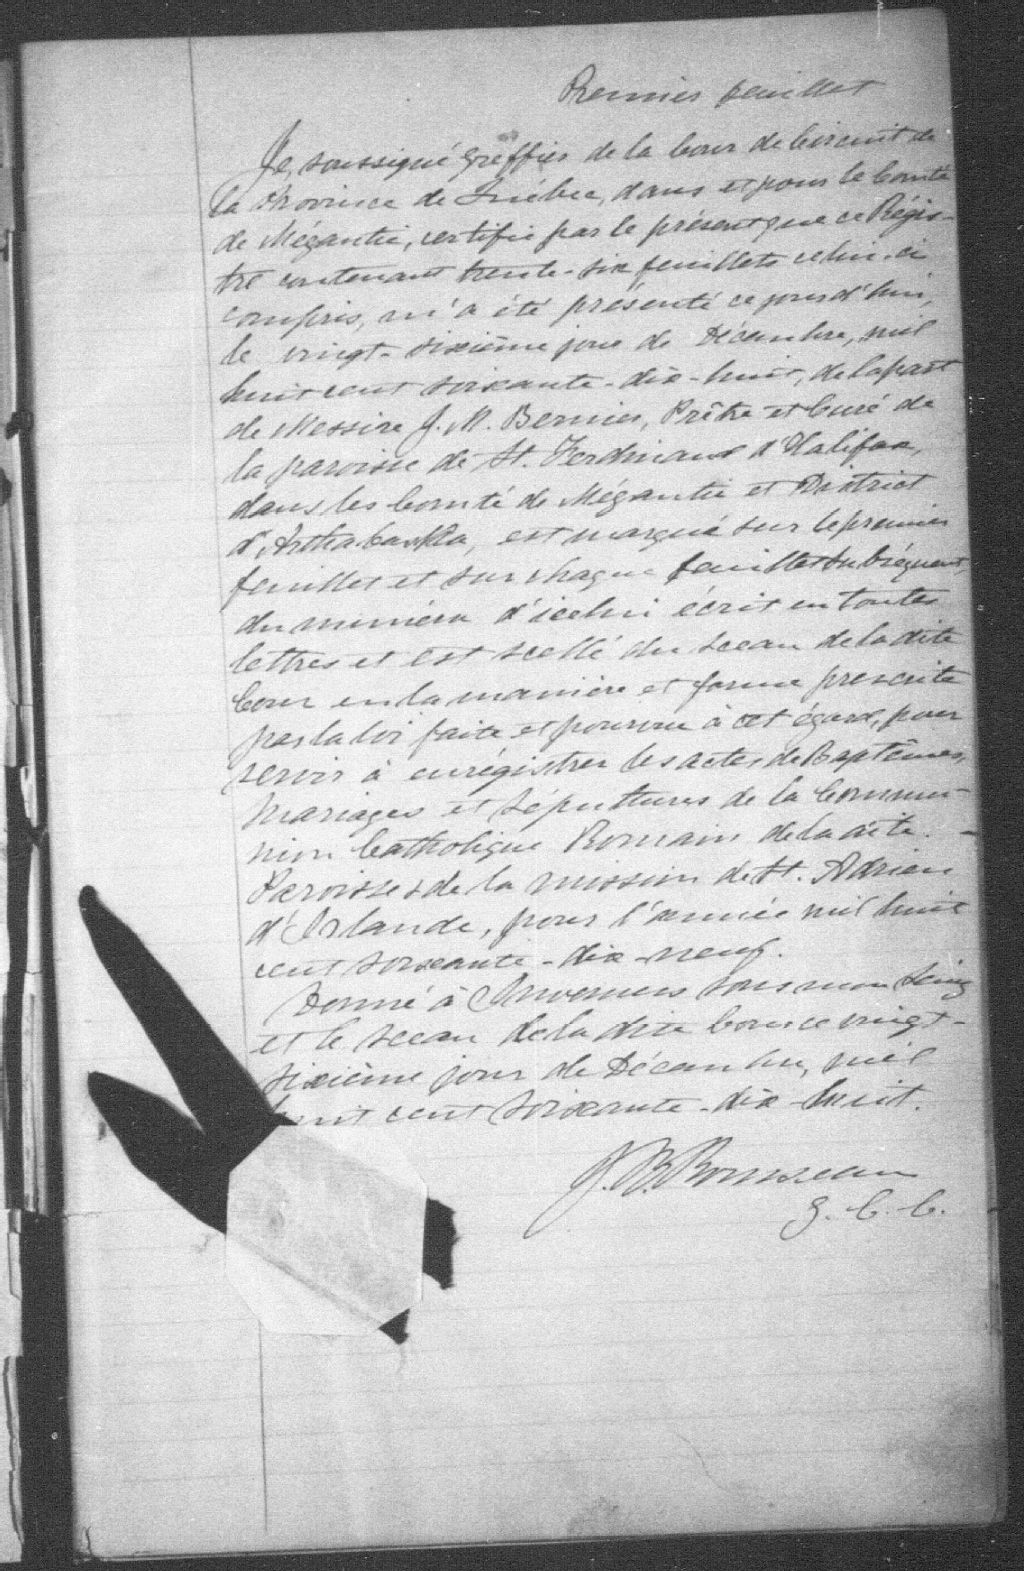 Premier feuillet
Je, soussigné Greffier de la Cour de Circuit de
la Province de Québec, dans et pour le Comté
de Mégantic, certifie par le présent que ce Régis-
tre contenant trente-six feuillets celui-ci
compris, m'a été présenté ce jourd'hui,
le vingt-sixième jour de Décembre, mil
huit cent soixante-dix-huit, de la part
de Messire J. M. Bernier, Prêtre et Curé de
la paroisse de St. Ferdinand d'Halifax,
dans les Comté de Mégantic et District
d'Arthabaska, est marqué sur le premier
feuillet et sur chaque feuillet subséquent
du numéro d'icelui écrit en toutes
lettres et est scellé du sceau de la dite
Cour en la manière et forme prescrite
par la loi faite et pourvue à cet égard, pour
servir à enrégistrer les actes de Baptêmes,
Mariages et Sépultures de la Commu-
nion Catholique Romain de la dite
Paroisse & de la mission de St. Adrien
d'Irlande, pour l'année mil huit
cent soixante-dix-neuf.
Donné à Inverness sous mon Seing
et le sceau de la dite Cour ce vingt-
sixième jour de Décembre, mil
huit cent soixante-dix-huit.
J. B. Rousseau
G. C. C.